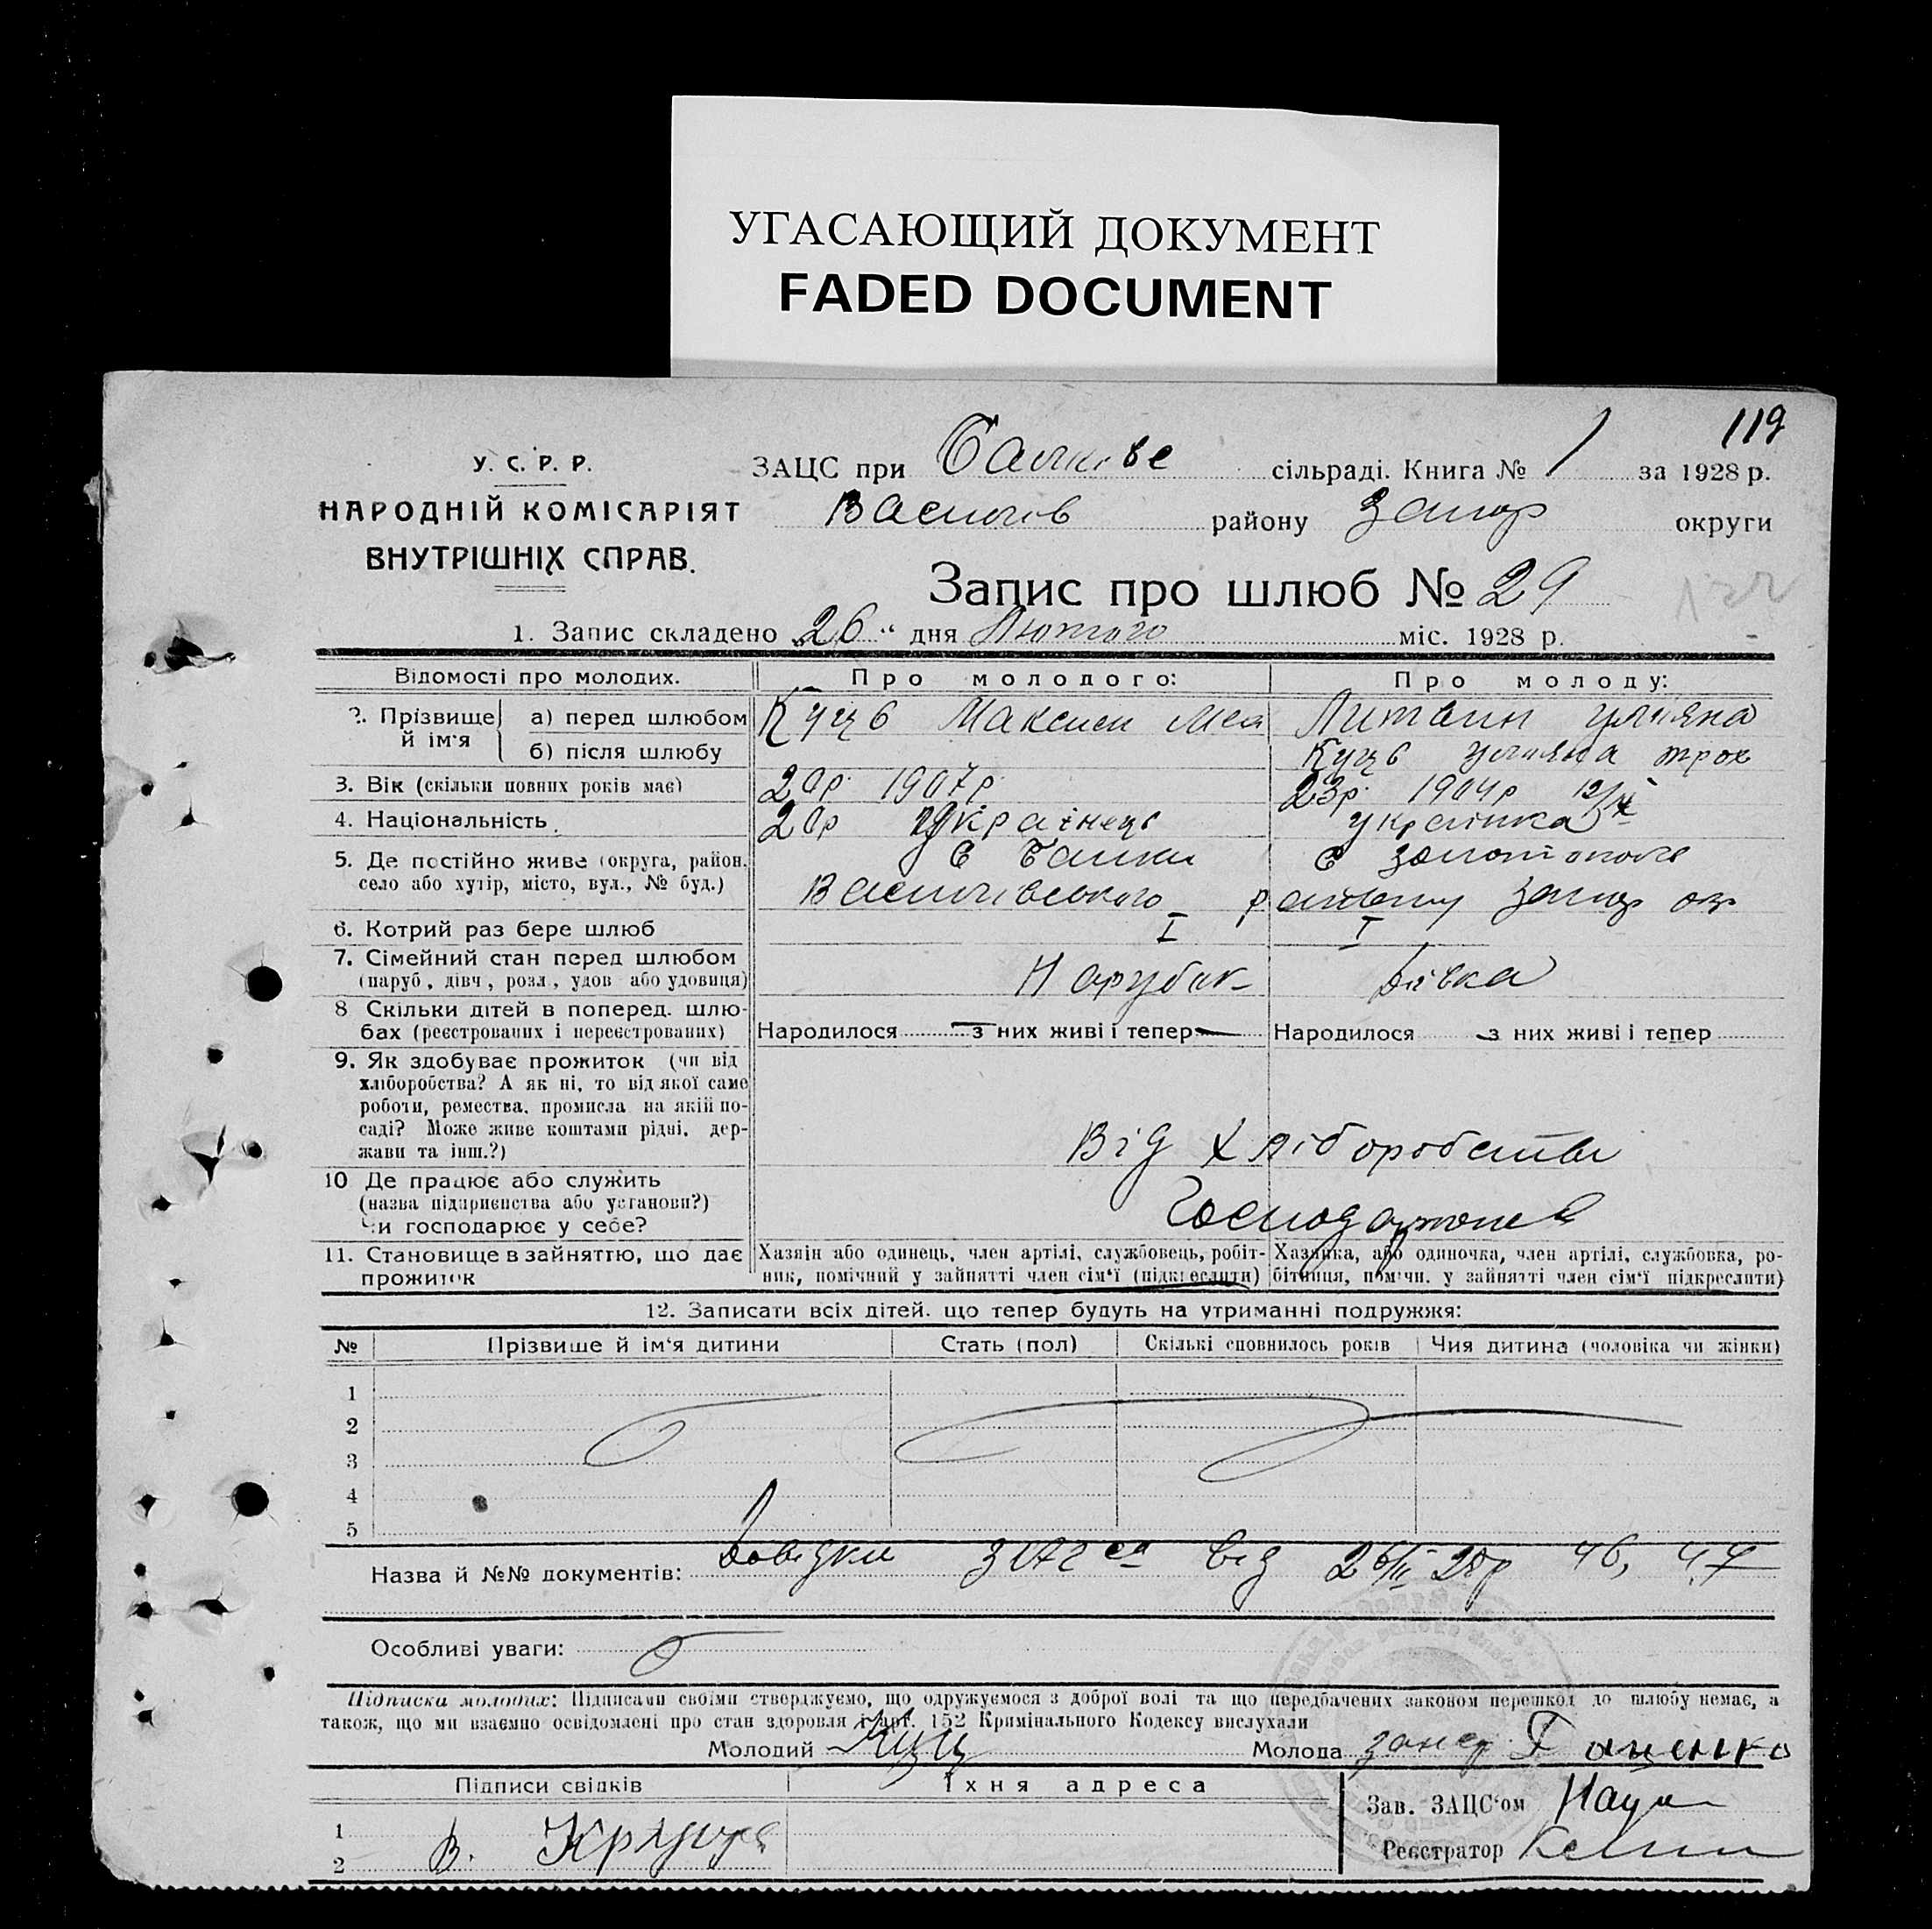 УГАСАЮЩИЙ ДОКУМЕНТ
FADED DOCUMENT
119
У. С. Р. Р.
НАРОДНІЙ КОМІСАРІЯТ
ВНУТРІШНІХ СПРАВ.
ЗАЦС при сільраді. Книга № 1 за 1928 р.
Василів району Запор округи
Запис про шлюб № 29
1. Запис складено „26“ дня Лютого міс. 1928 р.
Відомості про молодих. Про молодого: Про молоду:
2. Прізвище й ім'я а) перед шлюбом Куць Максим Литвин Уляна
б) після шлюбу Куць Уляна Трох
3. Вік (скільки повних років має) 20р 1907р 23р 1904р 12/
4. Національність 20р Українець Українка
5. Де постійно живе (округа, район, село або хутір, місто, вул., № буд.) С Балки С
Василівського району Запор окр
6. Котрий раз бере шлюб I I
7. Сімейний стан перед шлюбом (паруб, дівч, розл, удов або удовиця) Парубок Дівка
8 Скільки дітей в поперед. шлюбах (реєстрованих і нереєстрованих) Народилося — з них живі і тепер — Народилося з них живі і тепер
9. Як здобуває прожиток (чи від хліборобства? А як ні, то від якої саме роботи, ремества, промисла на якій посаді? Може живе коштами рідні, держави та інш.?) Від Хліборобства
10 Де працює або служить (назва підприєнства або установи?) Чи господарює у себе?
11. Становище в зайняттю, що дає прожиток Хазяїн або одинець, член артілі, службовець, робітник, помічний у зайнятті член сім'ї (підкреслити) Хазяйка, або одиночка, член артілі, службовка, робітниця, помічн. у зайнятті член сім'ї підкреслити)
12. Записати всіх дітей, що тепер будуть на утриманні подружжя:
№ Прізвише й ім'я дитини Стать (пол) Скількі сповнилось років Чия дитина (чоловіка чи жінки)
1
2
3
4
5
Назва й №№ документів: Довідки від 26/II 28р 46, 47
Особливі уваги:
Підписка молодих: Підписами своїми стверджуємо, що одружуємося з доброї волі та що передбачених законом перешкод до шлюбу немає, а
також, що ми взаємно освідомлені про стан здоровля і арт. 152 Кримінального Кодексу вислухали
Молодий Куц Молода
Підписи свідків Їхня адреса
Зав. ЗАЦС'ом
1
В.
2
Реєстратор